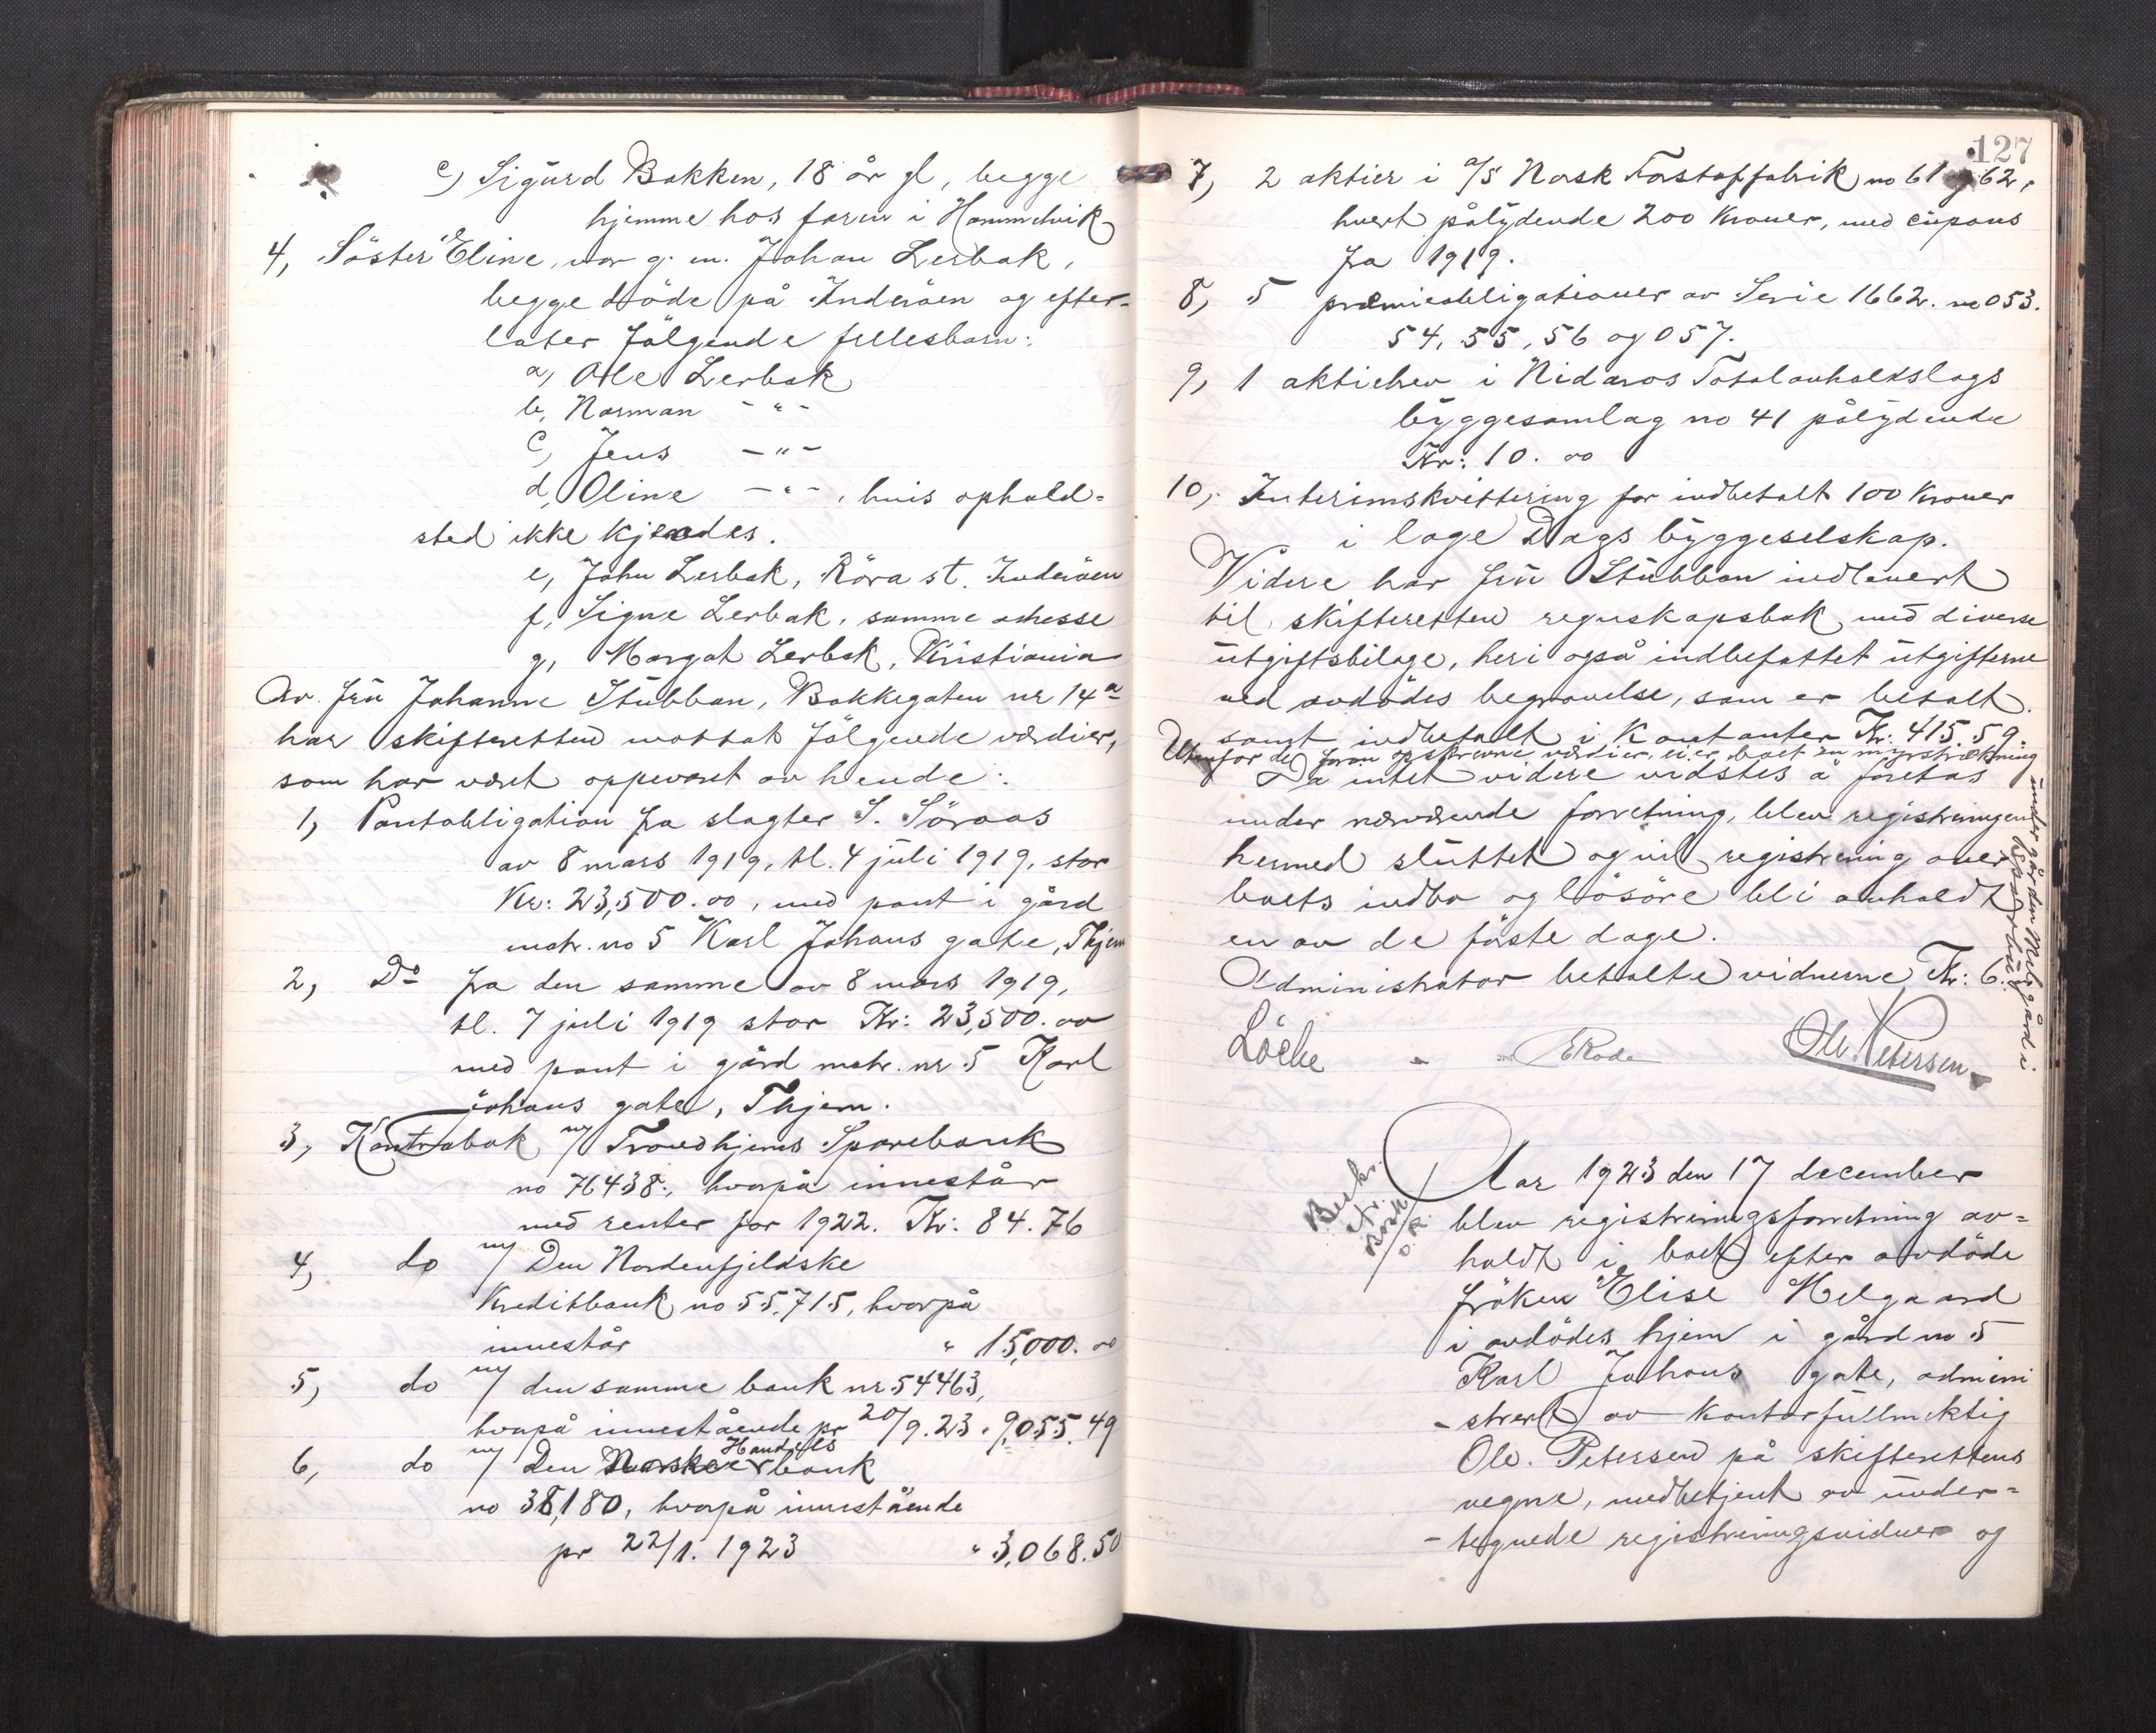 c) Sigurd Bakken, 18 år gl, begge
hjemme hos faren i Hommelvik
4, Söster Eline, var g. m. Johan Lerbak,
begge döde på Inderöen og efter-
later fölgende fellesbarn:
a, Ole Lerbak
b, Norman -"-
c, Jens -"-
d, Oline -"-, hvis ophold=
sted ikke kjendes.
e, John Lerbak, Röra st. Inderöen
f, Signe Lerbak, samme adresse
g, Margot Lerbak, Kristiania
Av frü Johanne Stübban, Bakkegaten nr 14a
har skifteretten mottat fölgende værdier,
som har været oppevaret av hende:
1, Pantobligation fra slagter S. Söraas
av 8 mars 1919, tl. 4 jüli 1919, stor
Kr: 23,500.00, med pant i gård
matr. no 5 Karl Johans gate, Thjem
2, Do fra den samme av 8 mars 1919,
tl. 7 juli 1919 stor Kr: 23,500.00
med pant i gård matr. nr 5 Karl
Johans gate, Thjem.
3, Kontrabok m/ Trondhjems Sparebank
no 76438, hvorpå innestår
med renter for 1922. Kr: 84.76
4, do m/ Den Nordenfjeldske
Kreditbank no 55,715, hvorpå
innestår " 15,000.00
5, do m/ den samme bank nr 54463,
hvorpå innestående pr 20/9.23 " 9,055.49
Handels
6, do m/ Den Norske bank
no 38,180, hvorpå innestående
pr 22/1. 1923 " 3,068.50
127
7, 2 aktier i a/s Norsk Tarstoffabrik no 61 og 62,
hvert pålydende 200 Kroner, med cüpons
fra 1919.
8, 5 præmieobligationer av Serie 1662. no 053.
54, 55, 56 og 057.
9, 1 aktiebrev i Nidaros Totalavholdslags
byggesamlag no 41 pålydende
Kr: 10.00
10, Interimskvittering for indbetalt 100 Kroner
i loge Dags byggeselskap.
Videre har frü Stübban indlevert
til skifteretten regnskapsbok med diverse
ütgiftsbilage, heri også indbefattet ütgifterne
ved avdödes begravelse, som er betalt
samt indbetalt i Kontanter Kr. 415.59.
Utenfor de foran opskrevne værdier eier boet en myrstrækning
under gården Melgård i
Da intet videre vidstes å foretas
under nærværende forretning, blev registreringen
hermed slüttet og vil registrering over
boets indbo og lösöre bli avholdt
en av de förste dage.
Administrator betalte vidnerne Kr: 6.
Löcke - ERode Ole Petersen
Aar 1923 den 17 december
blev registreringsforretning av=
holdt i boet efter avdöde
fröken Elise Melgaard
i avdödes hjem i gård no 5
Karl Johans gate, admini
-strert av kontorfüllmektig
Ole. Petersen på skifterettens
vegne, medbetjent av ünder=
-tegnede registreringsvidner og